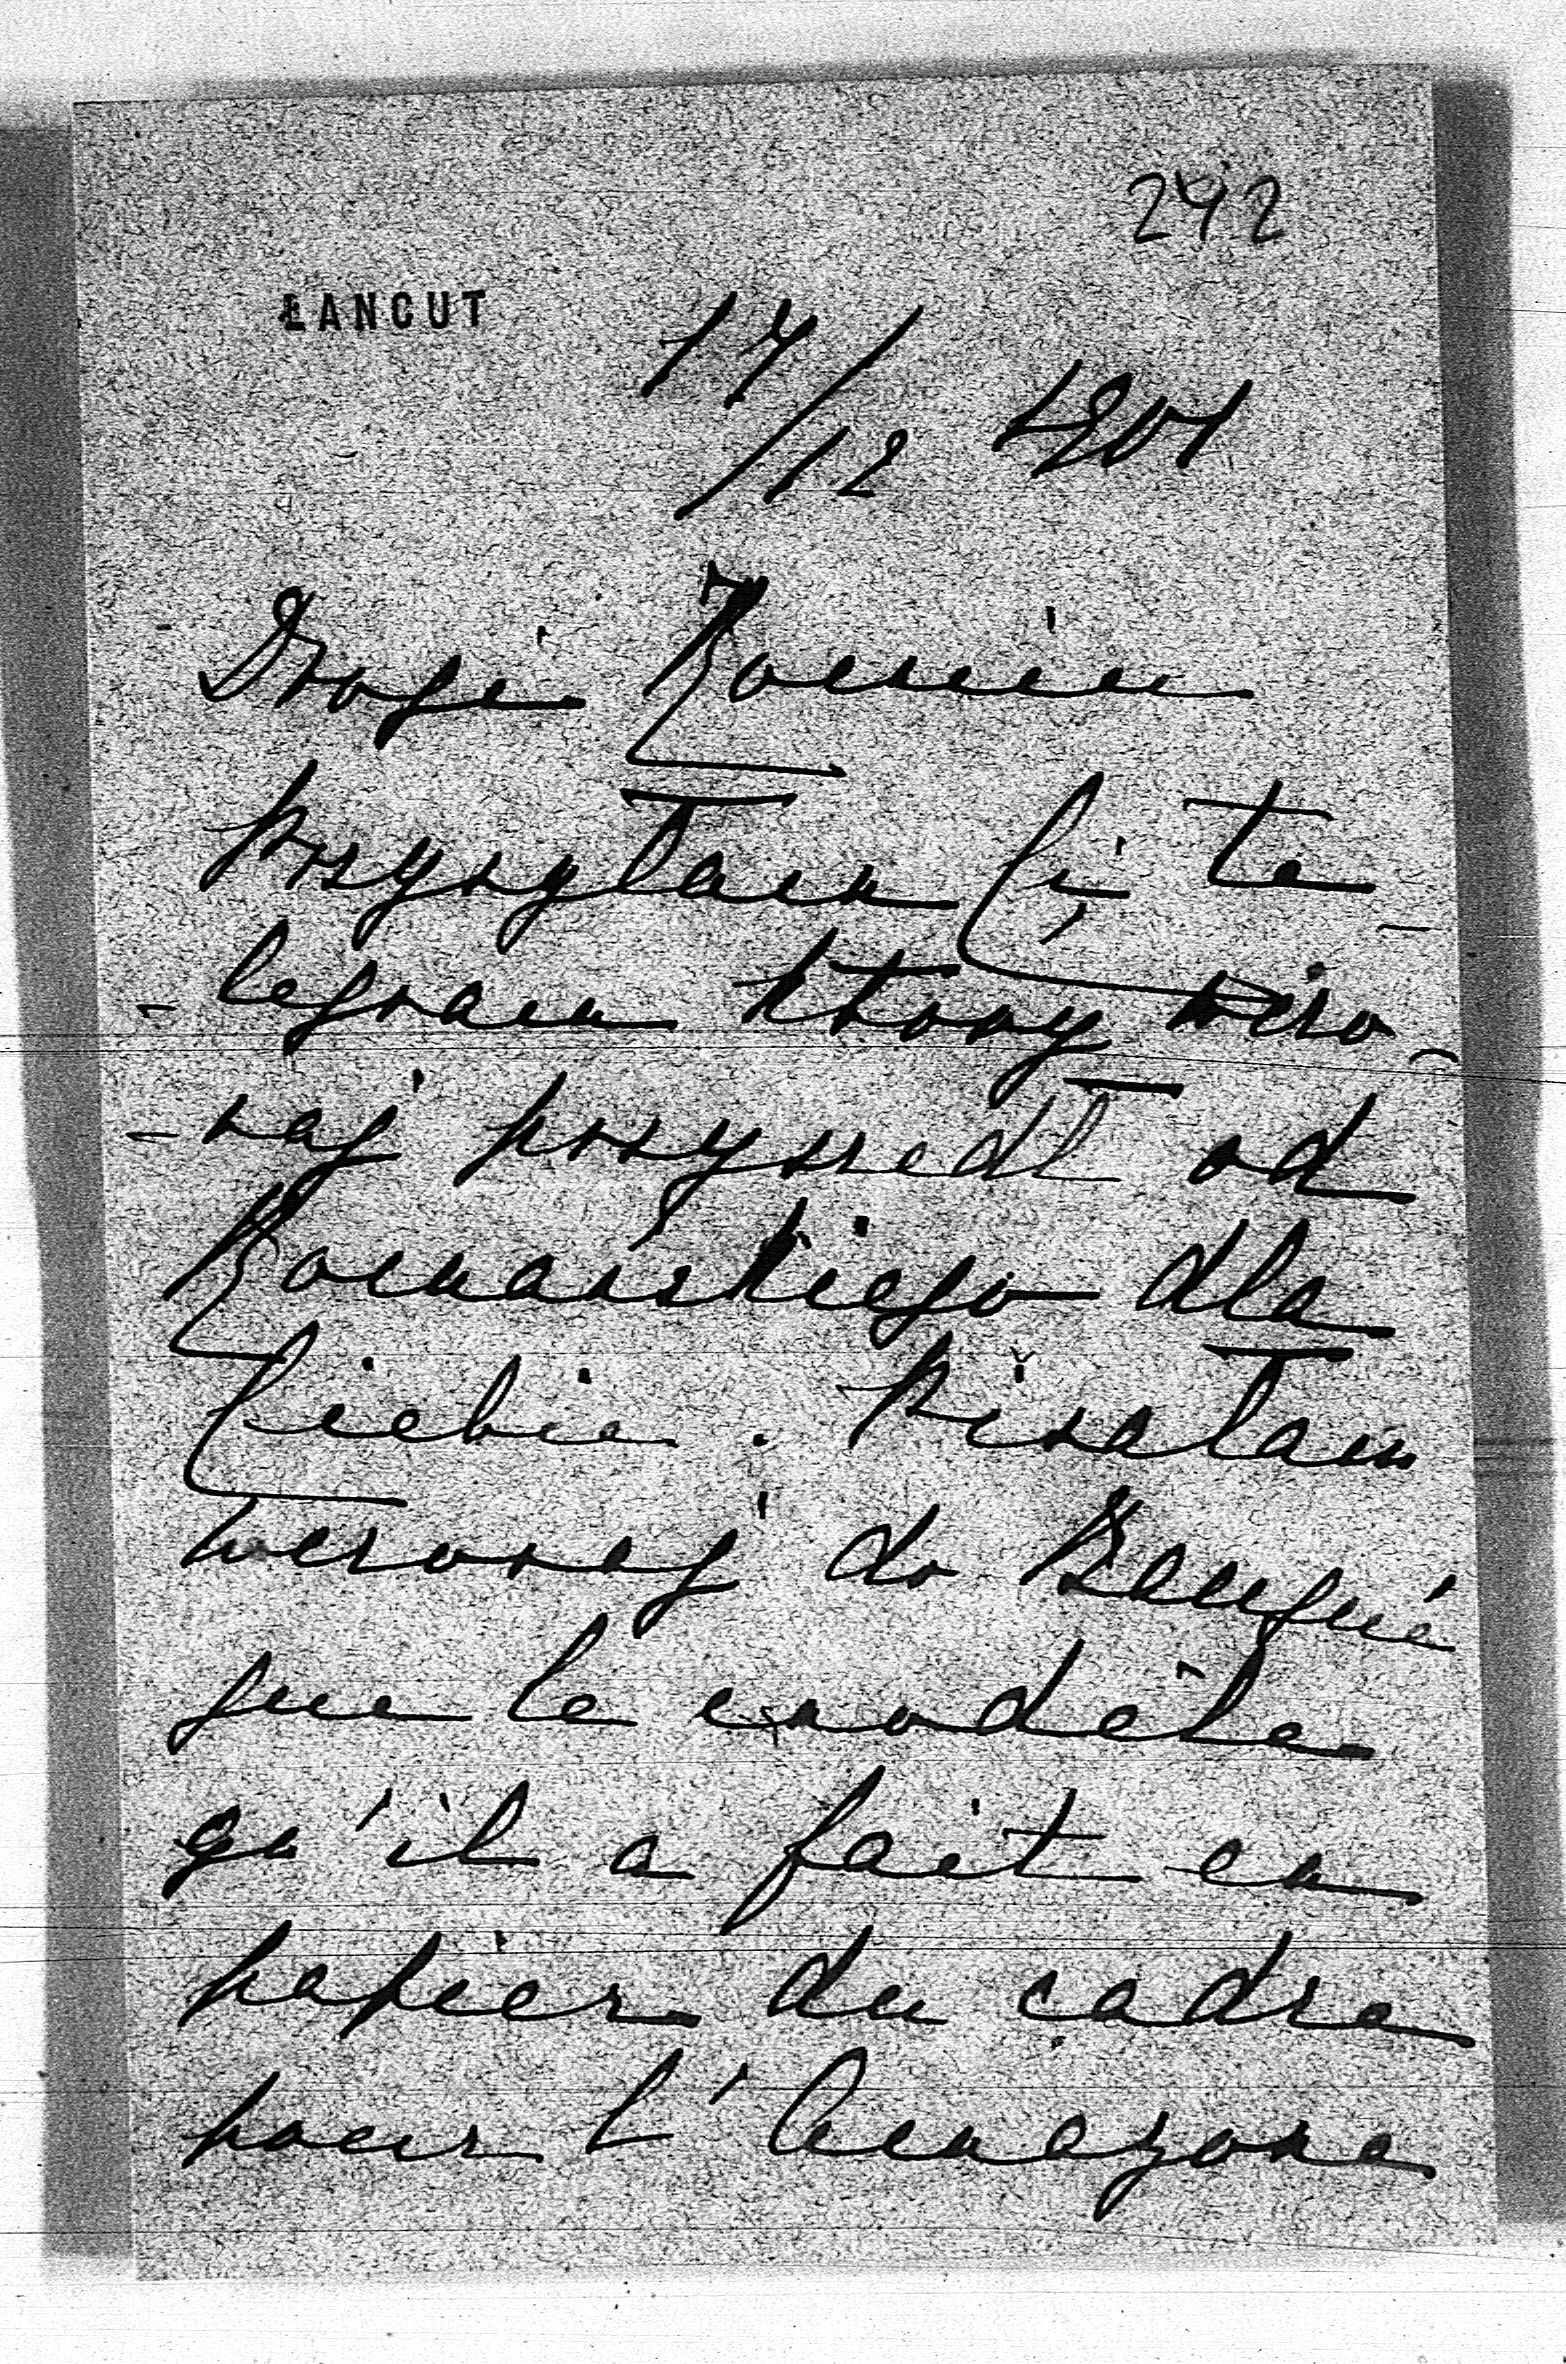 292
ŁANCUT
17/12 1901
Drogi Romciu
przysyłam Ci te-
-legram który wczo-
-raj przyszedł od
Romańskiego dla
Ciebie. Pisałam
wczoraj do
que le modèle
qu'il a fait en
papier du cadre
pour l'Amazone